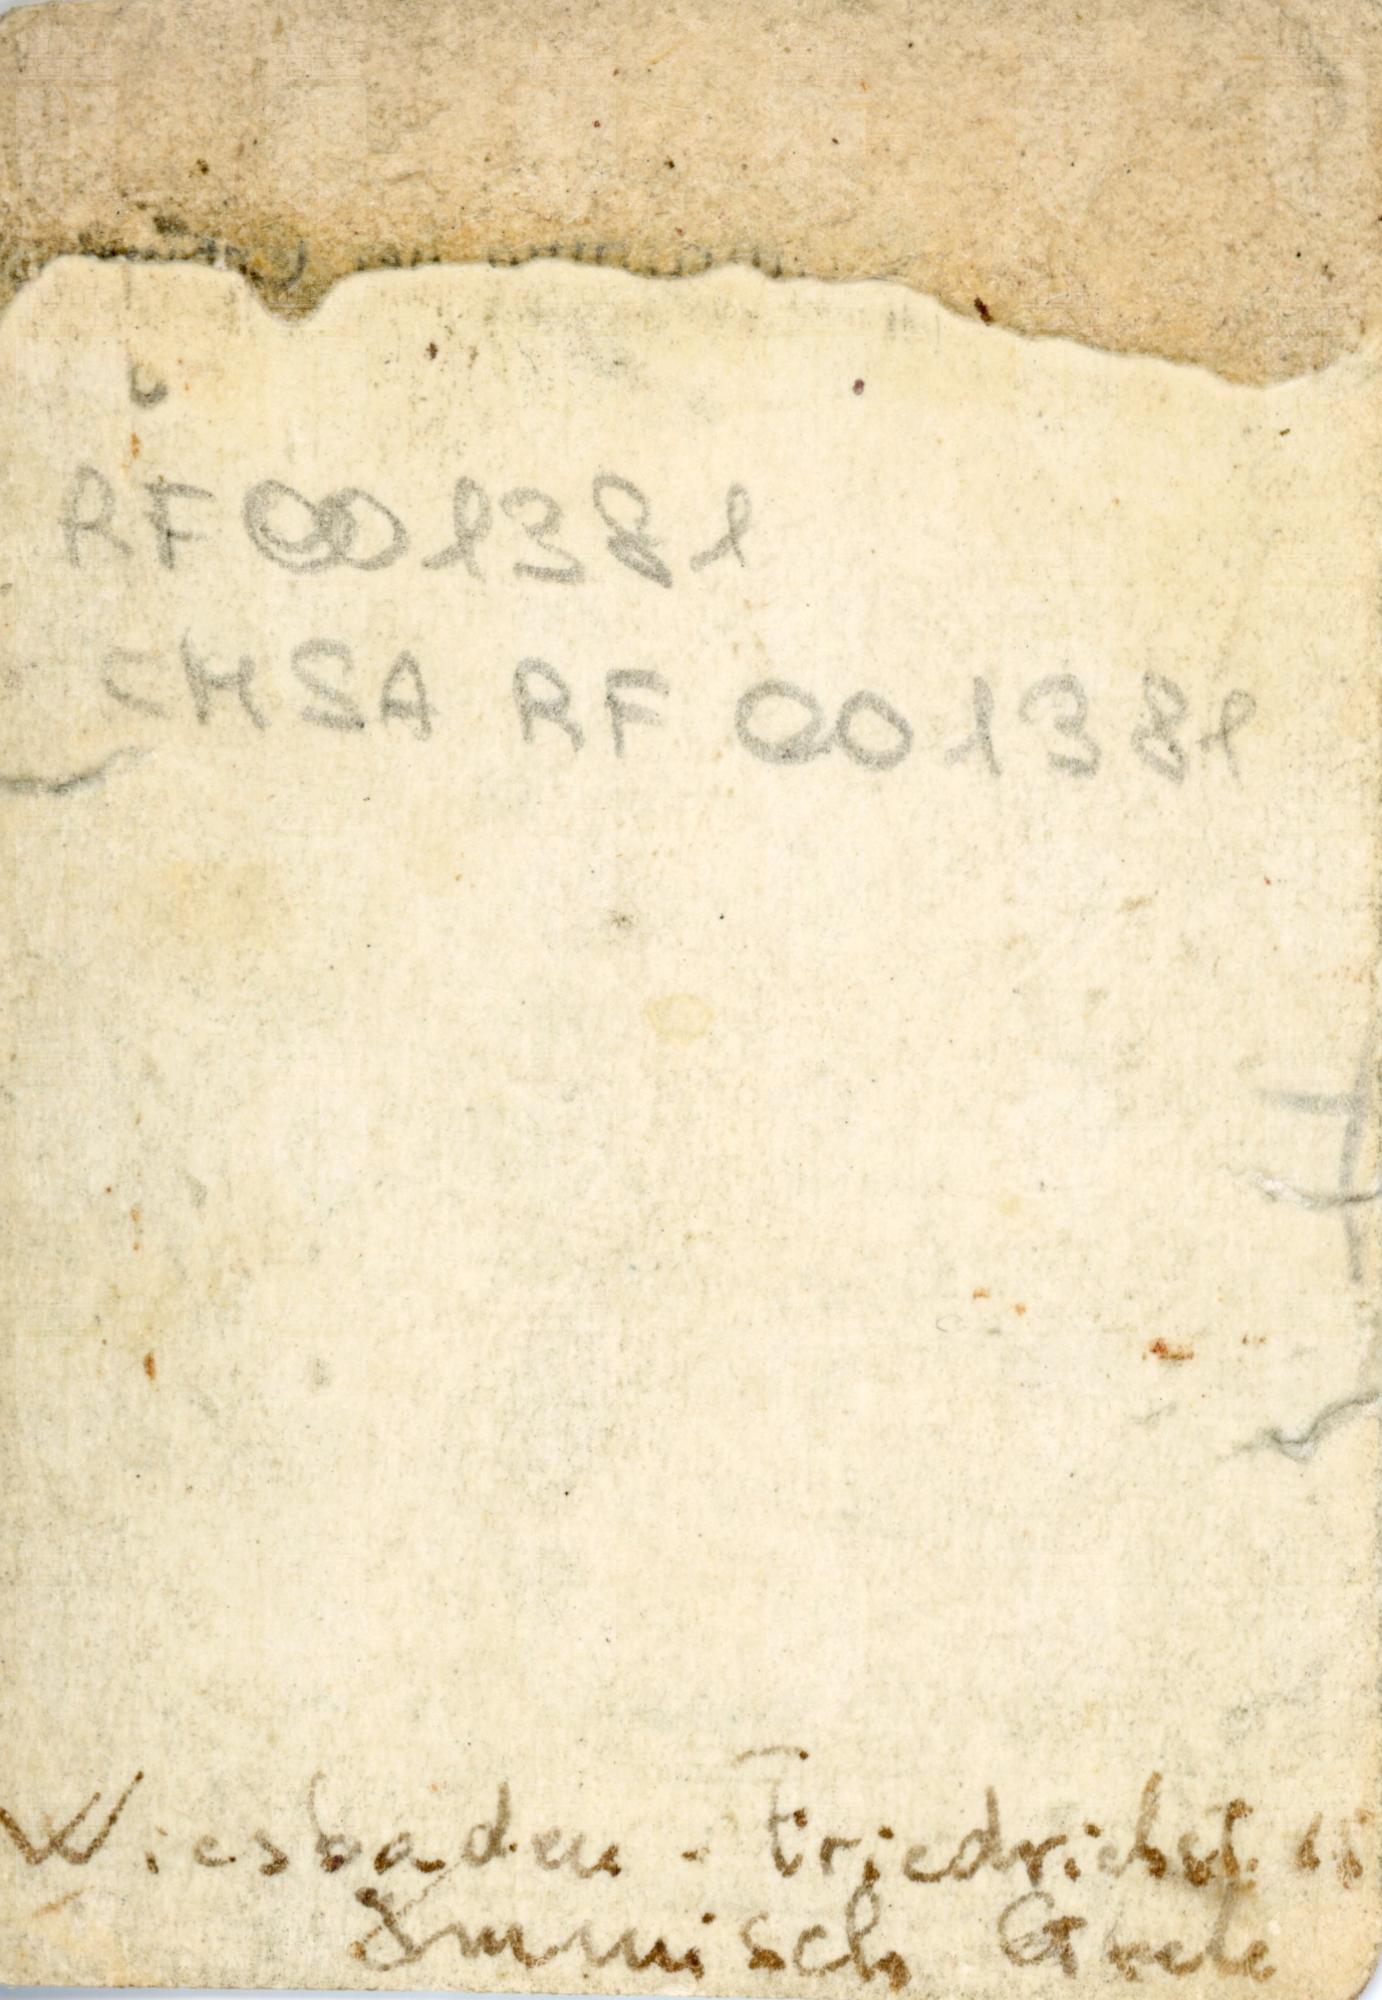 RF 001381
CMSA RF 001381
Wiesbaden - Friedrichst.
Immisch Grete